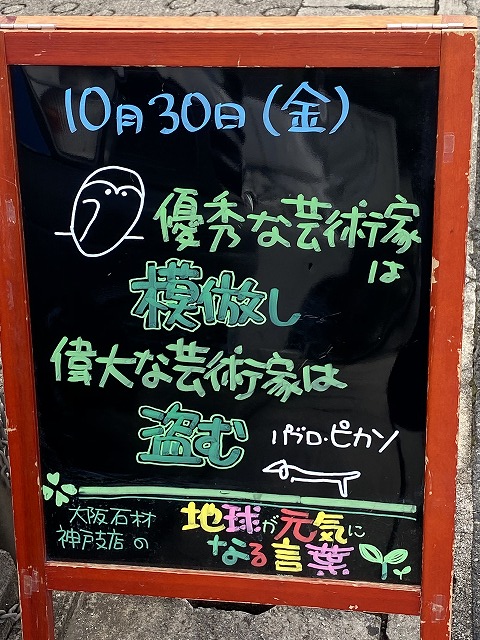 10月30日(金)
優秀な芸術家
は
模倣し
偉大な芸術家は
盗む
パブロ・ピカソ
大阪石材
神戸支店の
地球が元気に
なる言葉